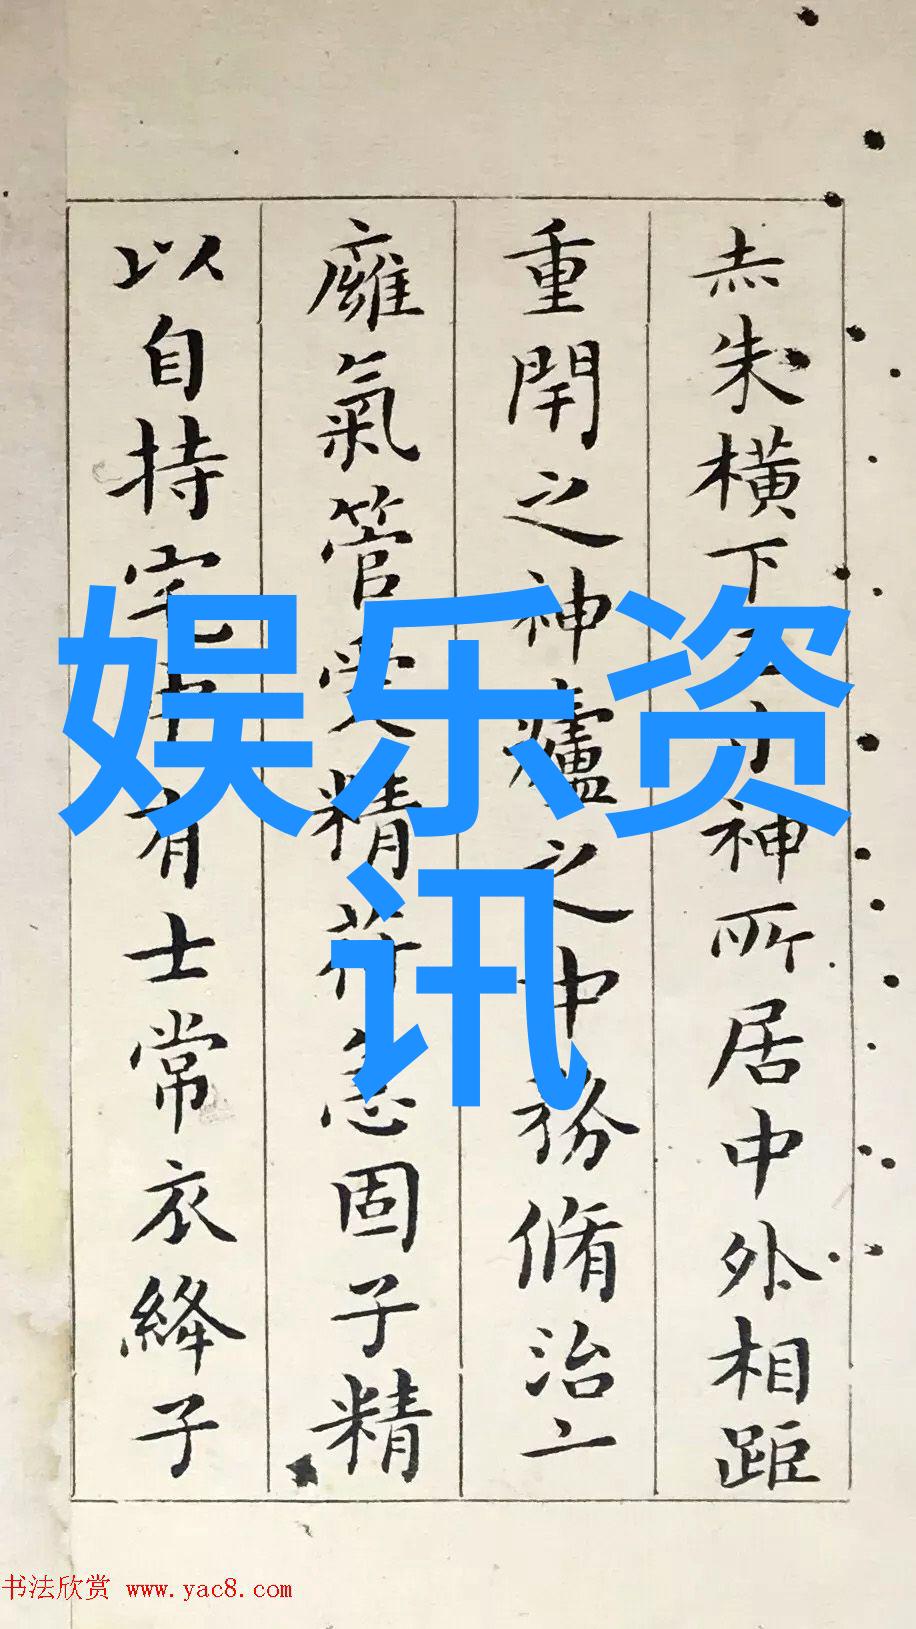 赤朱横下三寸神所居中外相距
重閈之神廬之中務脩治二
廱氣管受精符急固子精
以自持宅中有士常衣絳子
娱乐资
讯
书法欣赏 www.yac8.com